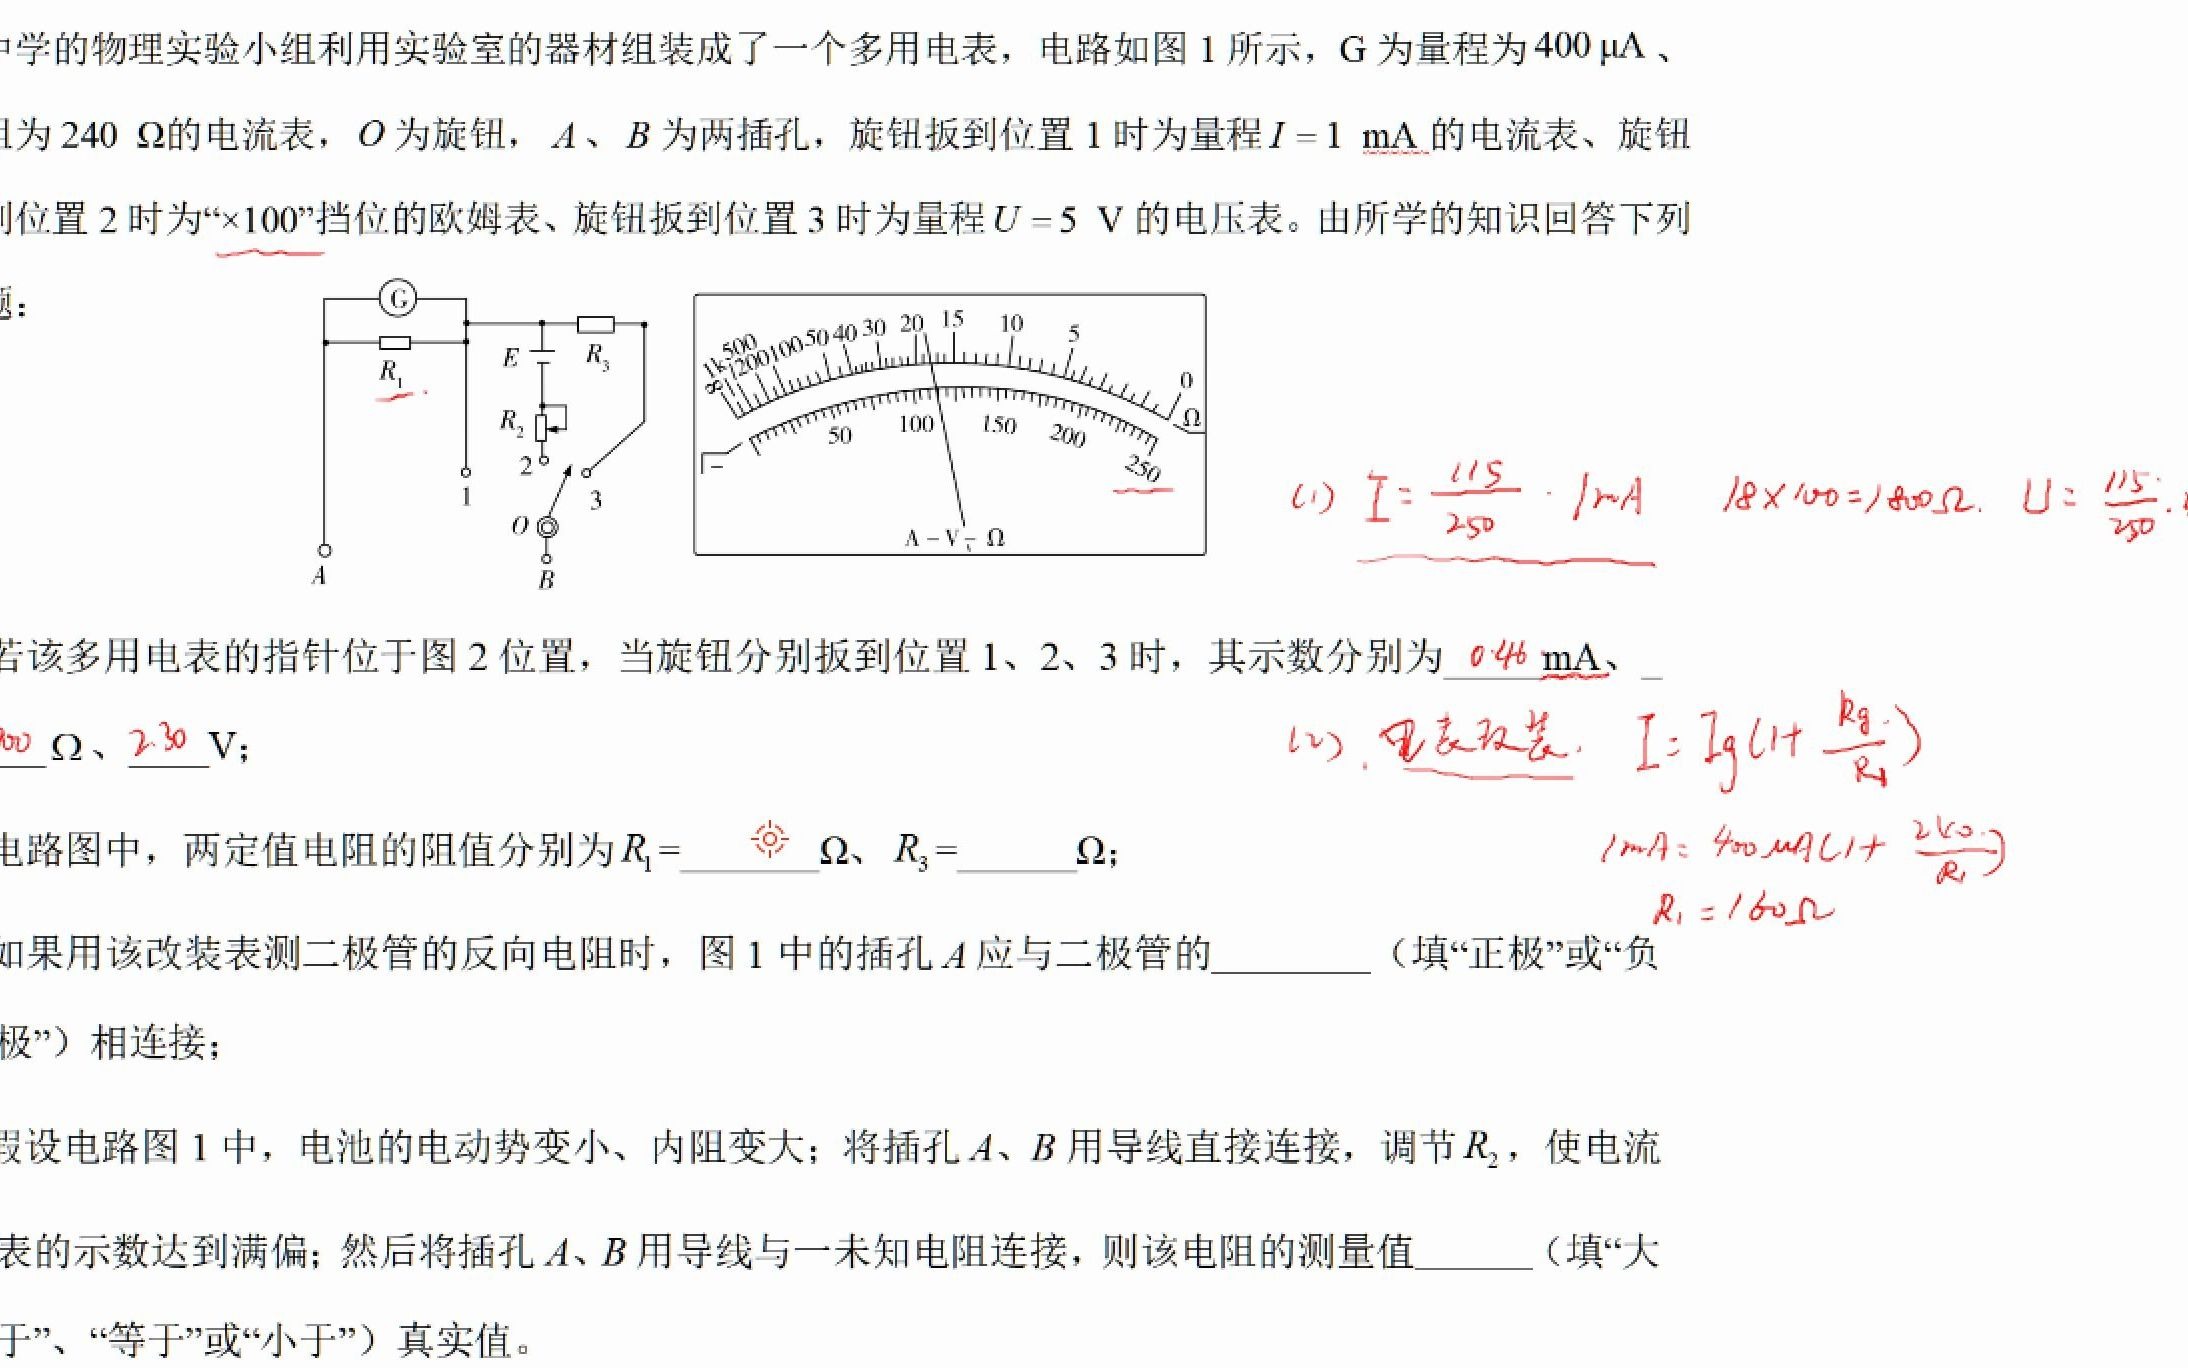 中学的物理实验小组利用实验室的器材组装成了一个多用电表，电路如图 1 所示，G 为量程为 400 μA 、
阻为 240 Ω的电流表，O 为旋钮，A、B 为两插孔，旋钮扳到位置 1 时为量程 I = 1 mA 的电流表、旋钮
到位置 2 时为“×100”挡位的欧姆表、旋钮扳到位置 3 时为量程 U = 5 V 的电压表。由所学的知识回答下列
题：
G
R₁
E
R₃
R₂
2
1
3
O
A
B
∞ 1k 500 200 100 50 40 30 20 15 10 5 0 Ω
50 100 150 200 250
A – V Ω
(1) I = 115/250 · 1mA 18×100=1800Ω. U = 115/250 ·
若该多用电表的指针位于图 2 位置，当旋钮分别扳到位置 1、2、3 时，其示数分别为 0.46 mA、
00 Ω、2.30 V；
(2). 电表改装. I = Ig(1+ Rg/R₁)
电路图中，两定值电阻的阻值分别为 R₁=______Ω、R₃=______Ω；
1mA = 400μA(1+ 240/R₁)
R₁ = 160Ω
如果用该改装表测二极管的反向电阻时，图 1 中的插孔 A 应与二极管的________（填“正极”或“负
极”）相连接；
假设电路图 1 中，电池的电动势变小、内阻变大；将插孔 A、B 用导线直接连接，调节 R₂，使电流
表的示数达到满偏；然后将插孔 A、B 用导线与一未知电阻连接，则该电阻的测量值______（填“大
于”、“等于”或“小于”）真实值。